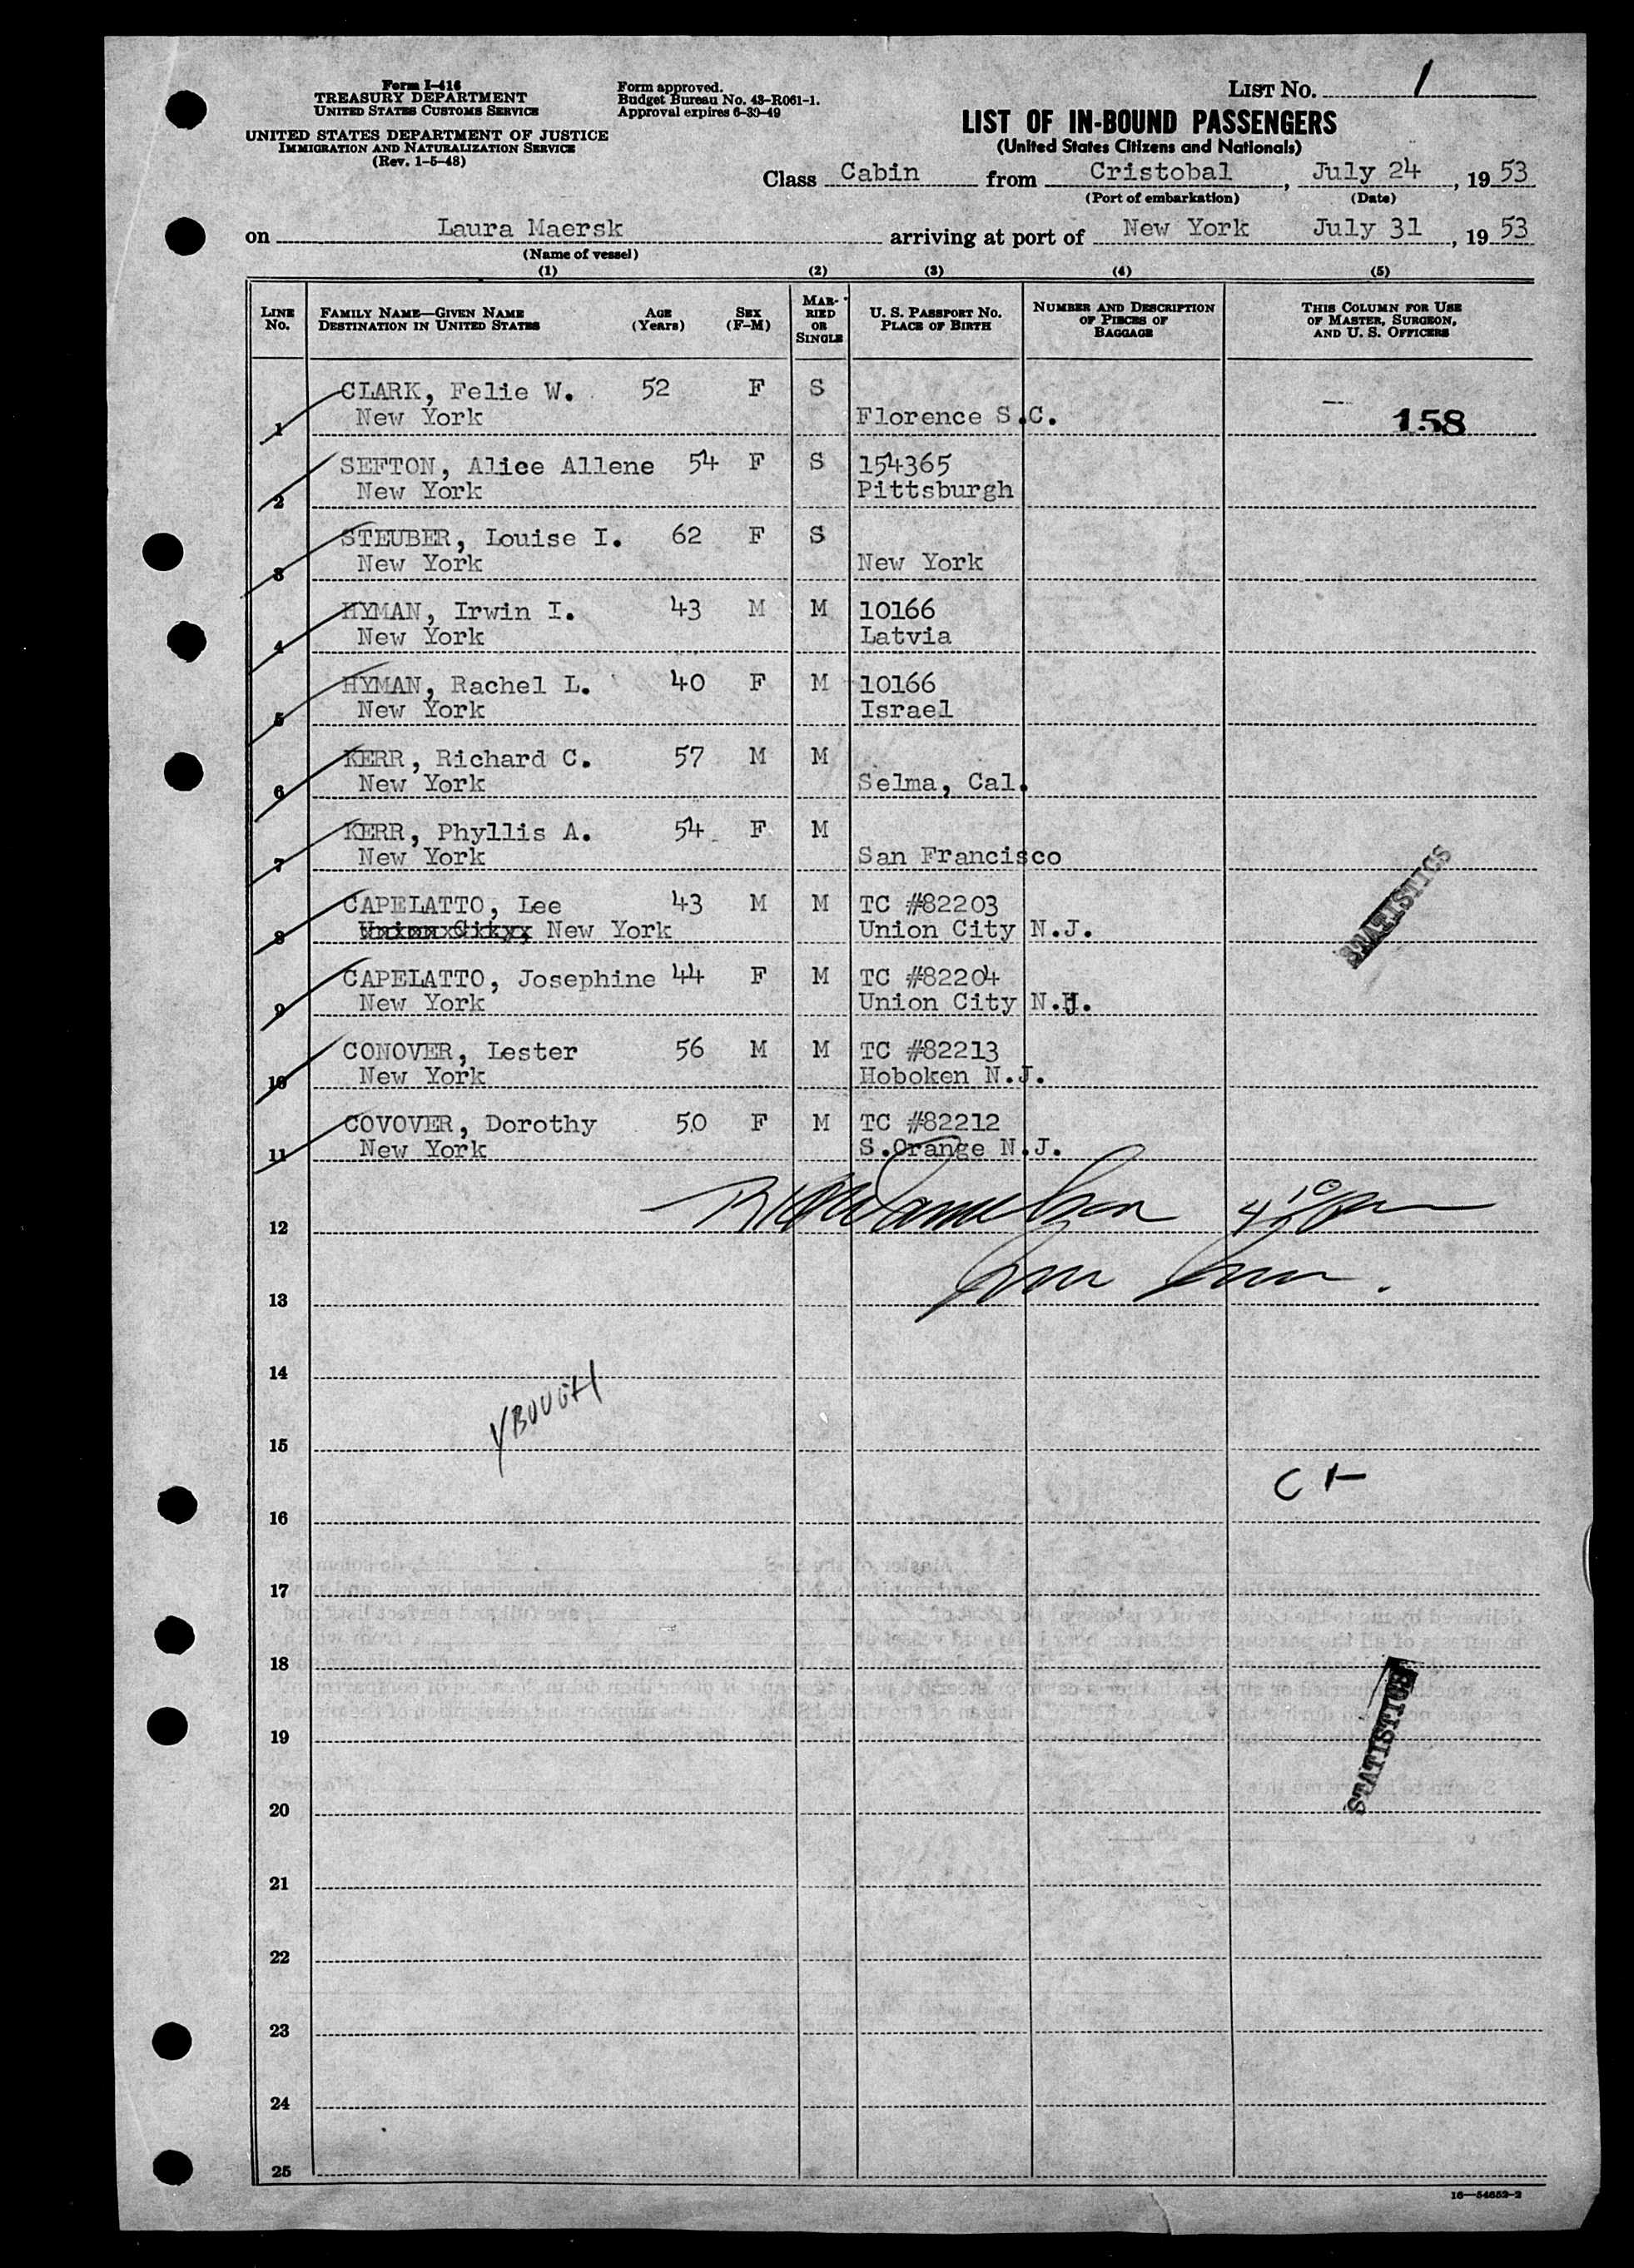 Form I-416
TREASURY DEPARTMENT
UNITED STATES CUSTOMS SERVICE
UNITED STATES DEPARTMENT OF JUSTICE
IMMIGRATION AND NATURALIZATION SERVICE
(Rev. 1-5-48)
Form approved.
Budget Bureau No. 43-R061-1.
Approval expires 6-30-49
LIST No. 1
LIST OF IN-BOUND PASSENGERS
(United States Citizens and Nationals)
Class Cabin from Cristobal, July 24, 1953
(Port of embarkation) (Date)
on Laura Maersk arriving at port of New York July 31, 1953
(Name of vessel)
(1) (2) (3) (4) (5)
LINE No. FAMILY NAME—GIVEN NAME DESTINATION IN UNITED STATES AGE (Years) SEX (F-M) MARRIED OR SINGLE U. S. PASSPORT No. PLACE OF BIRTH NUMBER AND DESCRIPTION OF PIECES OF BAGGAGE THIS COLUMN FOR USE OF MASTER, SURGEON, AND U. S. OFFICERS
CLARK, Felie W. 52 F S
1 New York Florence S.C. 158
SEFTON, Alice Allene 54 F S 154365
2 New York Pittsburgh
STEUBER, Louise I. 62 F S
3 New York New York
HYMAN, Irwin I. 43 M M 10166
4 New York Latvia
HYMAN, Rachel L. 40 F M 10166
5 New York Israel
KERR, Richard C. 57 M M
6 New York Selma, Cal.
KERR, Phyllis A. 54 F M
7 New York San Francisco
CAPELATTO, Lee 43 M M TC #82203
8 New York Union City N.J.
CAPELATTO, Josephine 44 F M TC #82204
9 New York Union City N.J.
CONOVER, Lester 56 M M TC #82213
10 New York Hoboken N.J.
COVOVER, Dorothy 50 F M TC #82212
11 New York S.Orange N.J.
STATISTICS
12
13
14
15
16
17
18
19
STATISTICS
20
21
22
23
24
25
16—54652-2